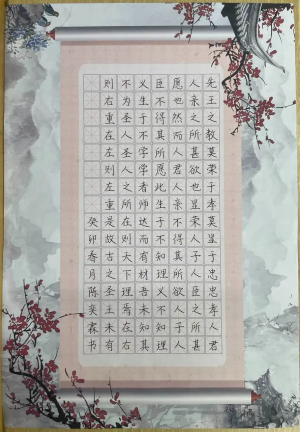 先王之教莫荣于孝莫显于忠忠孝人君
人亲之所甚欲也显荣人子人臣之所甚
愿也然而人君人亲不得其所欲人子人
臣不得其所愿此生于不知理义不知理
义生于不学学者师达而有材吾未知其
不为圣人圣人之所在则天下理焉在右
则右重在左则左重是故古之圣王未有
癸卯春月陈奕霖书